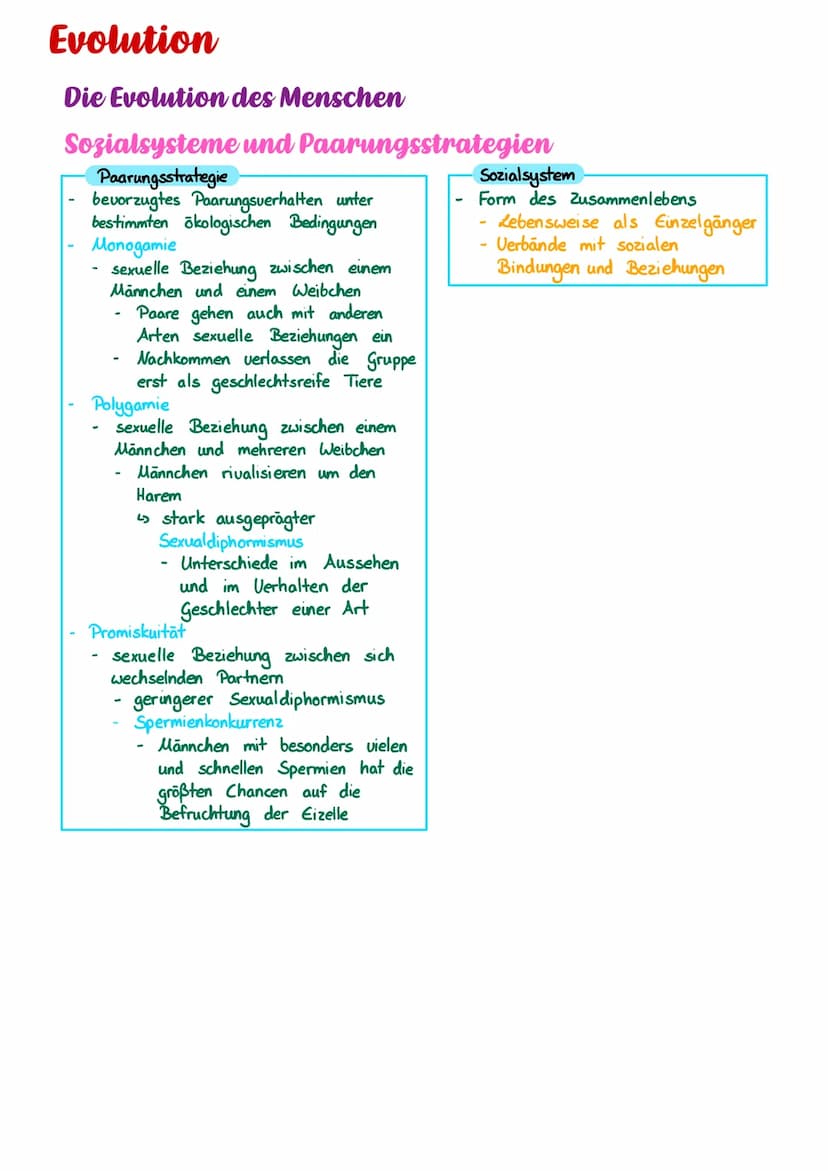 Evolution
Die Evolution des Menschen
Sozialsysteme und Paarungsstrategien
Paarungsstrategie
- bevorzugtes Paarungsverhalten unter
bestimmten ökologischen Bedingungen
- Monogamie
- sexuelle Beziehung zwischen einem
Männchen und einem Weibchen
- Paare gehen auch mit anderen
Arten sexuelle Beziehungen ein
- Nachkommen verlassen die Gruppe
erst als geschlechtsreife Tiere
- Polygamie
- sexuelle Beziehung zwischen einem
Männchen und mehreren Weibchen
- Männchen rivalisieren um den
Harem
↳ stark ausgeprägter
Sexualdiphormismus
- Unterschiede im Aussehen
und im Verhalten der
Geschlechter einer Art
- Promiskuität
- sexuelle Beziehung zwischen sich
wechselnden Partnern
- geringerer Sexualdiphormismus
- Spermienkonkurrenz
- Männchen mit besonders vielen
und schnellen Spermien hat die
größten Chancen auf die
Befruchtung der Eizelle
Sozialsystem
- Form des Zusammenlebens
- Lebensweise als Einzelgänger
- Verbände mit sozialen
Bindungen und Beziehungen